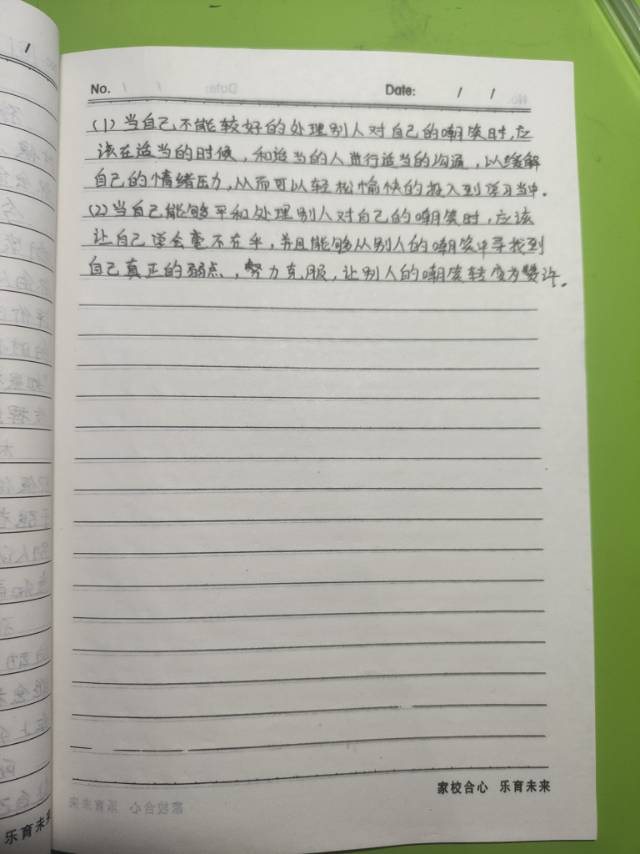 No.
Date: / /
(1)当自己不能较好的处理别人对自己的嘲笑时,应
该在适当的时候,和适当的人进行适当的沟通,以缓解
自己的情绪压力,从而可以轻松愉快的投入到学习当中.
(2)当自己能够平和处理别人对自己的嘲笑时,应该
让自己学会毫不在乎,并且能够从别人的嘲笑中寻找到
自己真正的弱点,努力克服,让别人的嘲笑转变为赞许。
家校合心 乐育未来
乐育未来